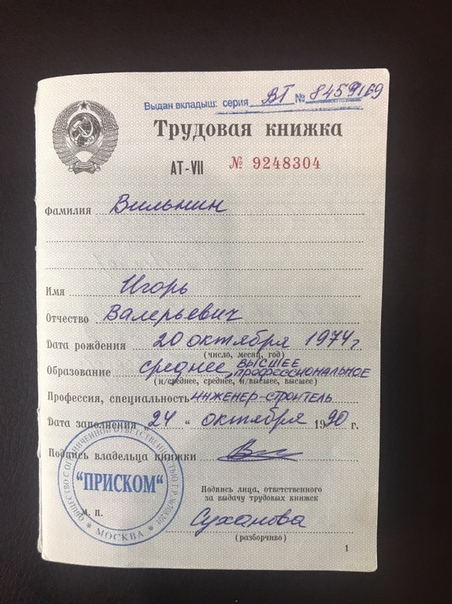 Выдан вкладыш: серия ВТ № 8459169
Трудовая книжка
АТ-VII № 9248304
Фамилия Вильнин
Имя Игорь
Отчество Валерьевич
Дата рождения 20 октября 1974 г.
(число, месяц, год)
Образование среднее, высшее профессиональное
(н/среднее, среднее, н/высшее, высшее)
Профессия, специальность инженер-строитель
Дата заполнения 24 " октября 1990 г.
Подпись владельца книжки
ОБЩЕСТВО С ОГРАНИЧЕННОЙ ОТВЕТСТВЕННОСТЬЮ
"ПРИСКОМ"
МОСКВА
М. П.
Подпись лица, ответственного
за выдачу трудовых книжек
Суханова
(разборчиво)
1